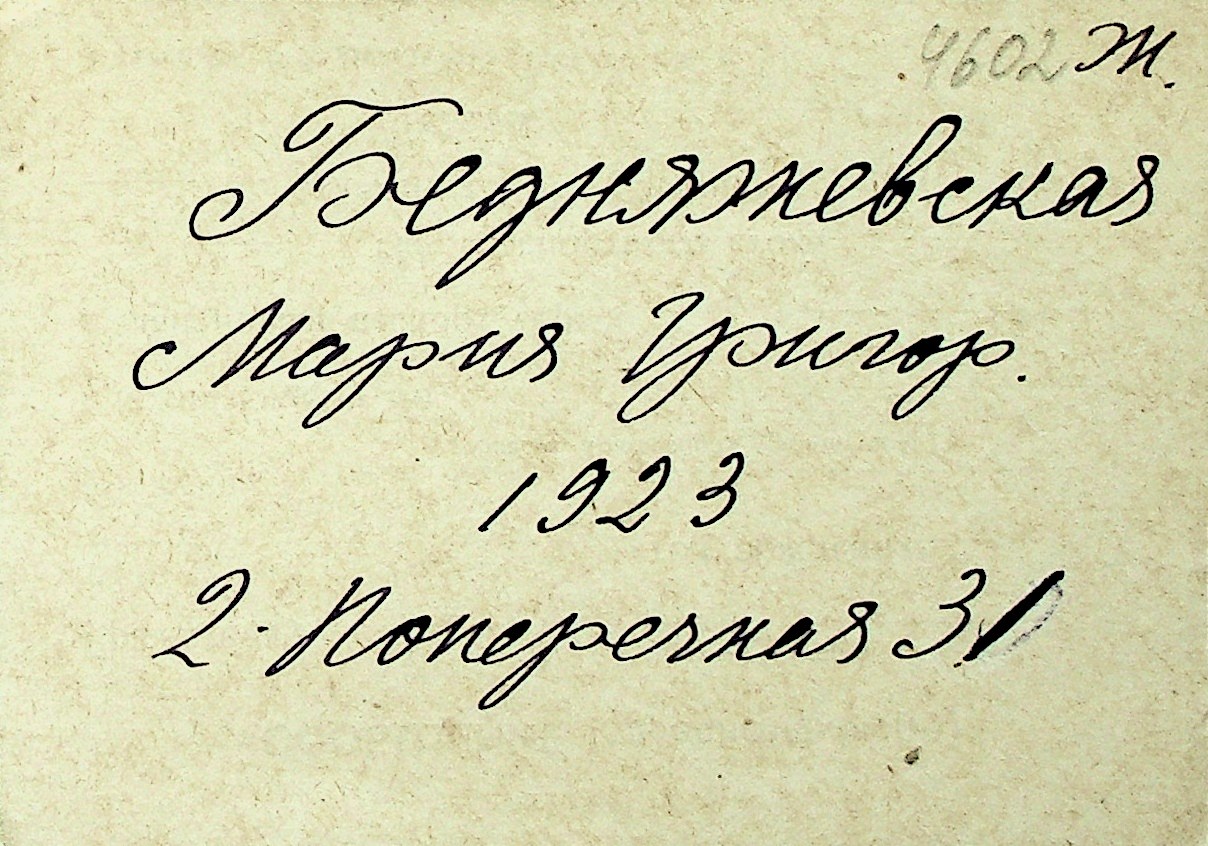 4602 Ж.
Бедняжевская
Мария Григор.
1923
2. Поперечная 31